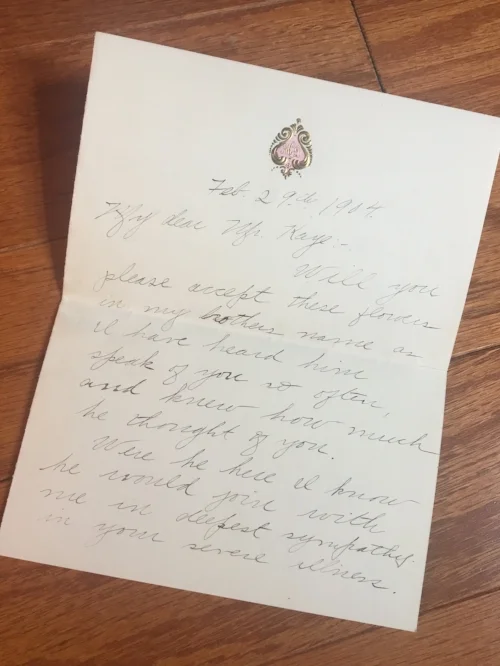 Feb. 29th, 1904.
My dear Mr. Kaye:-
Will you
please accept these flowers
in my brothers name as
I have heard him
speak of you so often,
and knew how much
he thought of you.
Were he here I know
he would join with
me in deepest sympathy
in your severe illness.